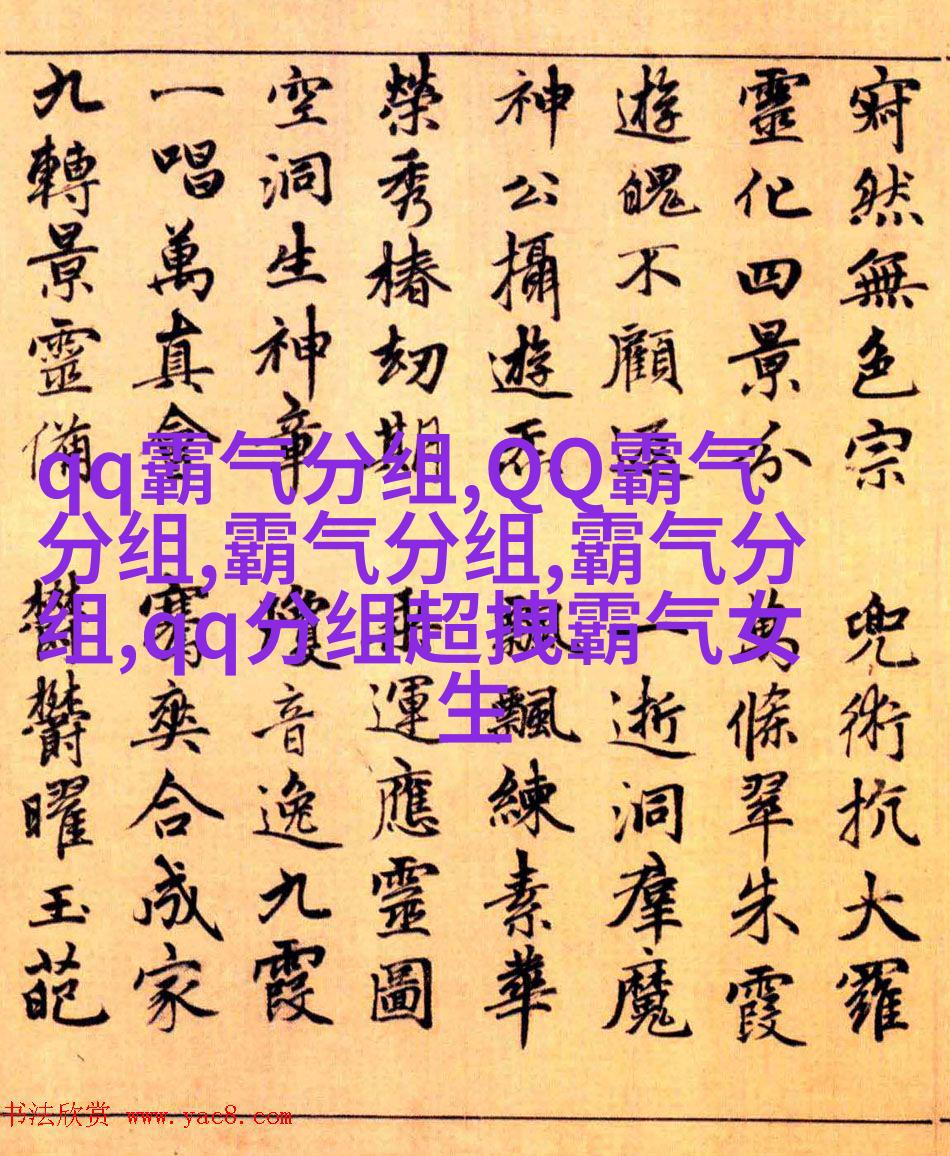 寂然無色宗 兜術抗大羅
靈化四景分 萬條翠朱霞
遊魄不顧 一逝洞羣魔
神公攝遊 飄練素華
榮秀椿劫期 運應靈圖
空洞生神章 瓊音逸九霞
一唱萬真會 騫爽合成家
九轉景靈備 鬱鬱曜玉葩
qq霸气分组,QQ霸气
分组,霸气分组,霸气分
组,qq分组超拽霸气女
生
书法欣赏 www.yac8.com